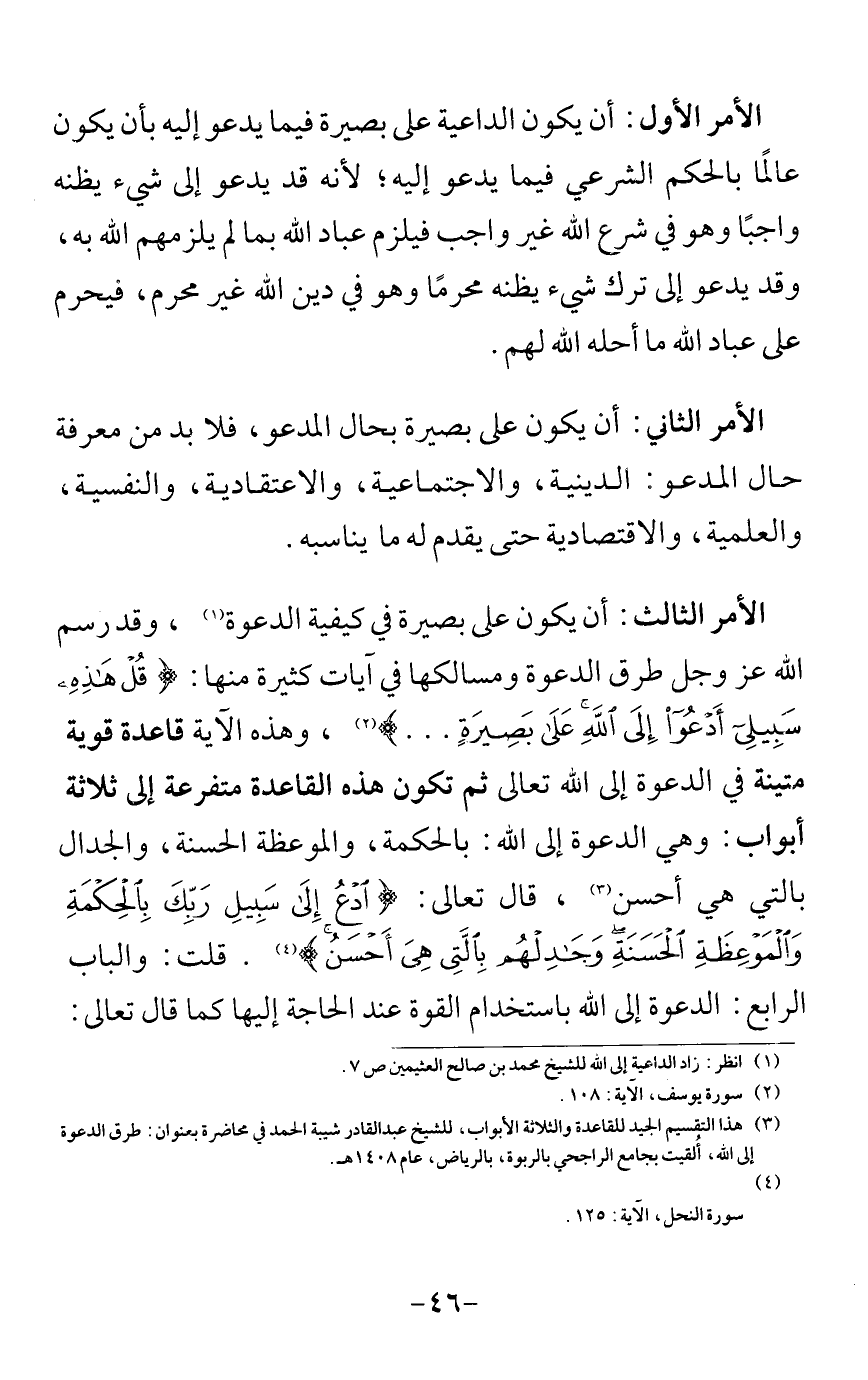 الأمر الأول: أن يكون الداعية على بصيرة فيما يدعو إليه بأن يكون
عالمًا بالحكم الشرعي فيما يدعو إليه؛ لأنه قد يدعو إلى شيء يظنه
واجبًا وهو في شرع الله غير واجب فيلزم عباد الله بما لم يلزمهم الله به،
وقد يدعو إلى ترك شيء يظنه محرمًا وهو في دين الله غير محرم، فيحرم
على عباد الله ما أحله الله لهم.
الأمر الثاني: أن يكون على بصيرة بحال المدعو، فلا بد من معرفة
حال المدعو: الدينية، والاجتماعية، والاعتقادية، والنفسية،
والعلمية، والاقتصادية حتى يقدم له ما يناسبه.
الأمر الثالث: أن يكون على بصيرة في كيفية الدعوة(١)، وقد رسم
الله عز وجل طرق الدعوة ومسالكها في آيات كثيرة منها: ﴿قُلْ هَـٰذِهِۦ
سَبِيلِىٓ أَدْعُوٓا۟ إِلَى ٱللَّهِ ۚ عَلَىٰ بَصِيرَةٍ ...﴾(٢)، وهذه الآية قاعدة قوية
متينة في الدعوة إلى الله تعالى ثم تكون هذه القاعدة متفرعة إلى ثلاثة
أبواب: وهي الدعوة إلى الله: بالحكمة، والموعظة الحسنة، والجدال
بالتي هي أحسن(٣)، قال تعالى: ﴿ٱدْعُ إِلَىٰ سَبِيلِ رَبِّكَ بِٱلْحِكْمَةِ
وَٱلْمَوْعِظَةِ ٱلْحَسَنَةِ ۖ وَجَـٰدِلْهُم بِٱلَّتِى هِىَ أَحْسَنُ ۚ﴾(٤). قلت: والباب
الرابع: الدعوة إلى الله باستخدام القوة عند الحاجة إليها كما قال تعالى:
(١) انظر: زاد الداعية إلى الله للشيخ محمد بن صالح العثيمين ص٧.
(٢) سورة يوسف، الآية: ١٠٨.
(٣) هذا التقسيم الجيد للقاعدة والثلاثة الأبواب، للشيخ عبدالقادر شيبة الحمد في محاضرة بعنوان: طرق الدعوة
إلى الله، أُلقيت بجامع الراجحي بالربوة، بالرياض، عام ١٤٠٨هـ.
(٤)
سورة النحل، الآية: ١٢٥.
-٤٦-